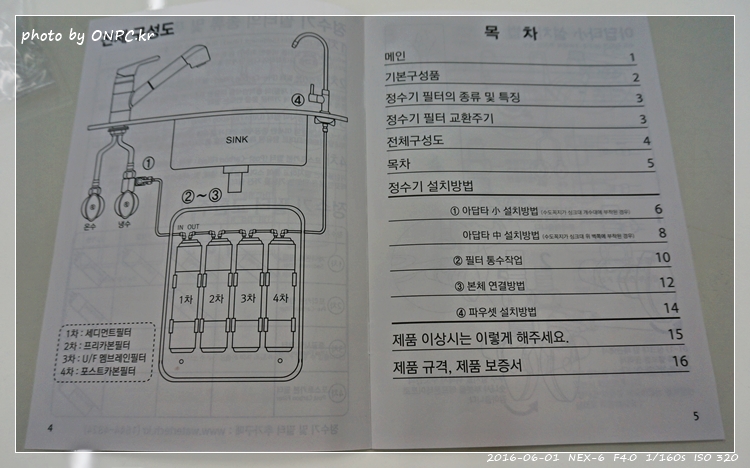 photo by ONPC.kr
전체 구성도
④
SINK
①
②～③
온수
냉수
IN OUT
1차 2차 3차 4차
1차 : 세디먼트필터
2차 : 프리카본필터
3차 : U/F 멤브레인필터
4차 : 포스트카본필터
4
목 차
메인 1
기본구성품 2
정수기 필터의 종류 및 특징 3
정수기 필터 교환주기 3
전체구성도 4
목차 5
정수기 설치방법
① 아답타 小 설치방법 (수도꼭지가 싱크대 개수대에 부착된 경우) 6
아답타 中 설치방법 (수도꼭지가 싱크대 위 벽쪽에 부착된 경우) 8
② 필터 통수작업 10
③ 본체 연결방법 12
④ 파우셋 설치방법 14
제품 이상시는 이렇게 해주세요. 15
제품 규격, 제품 보증서 16
5
2016-06-01 NEX-6 F4.0 1/160s ISO 320